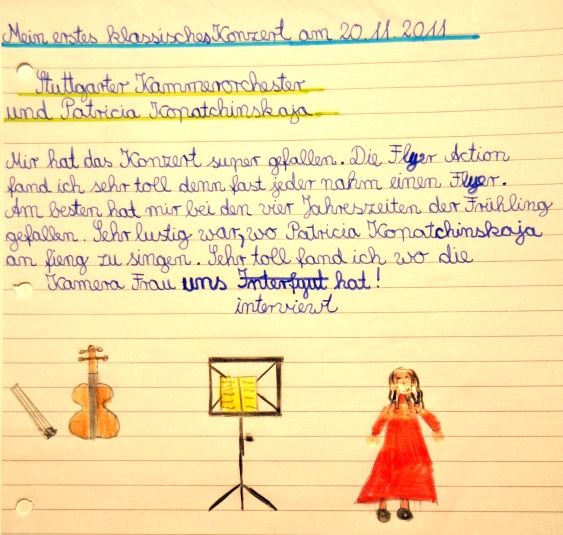 Mein erstes klassisches Konzert am 20.11.2011
Stuttgarter Kammerorchester
und Patricia Kopatchinskaja
Mir hat das Konzert super gefallen. Die Flyer Action
fand ich sehr toll denn fast jeder nahm einen Flyer.
Am besten hat mir bei den vier Jahreszeiten der Frühling
gefallen. Sehr lustig war, wo Patricia Kopatchinskaja
an fieng zu singen. Sehr toll fand ich wo die
Kamera Frau uns hat!
interviewt